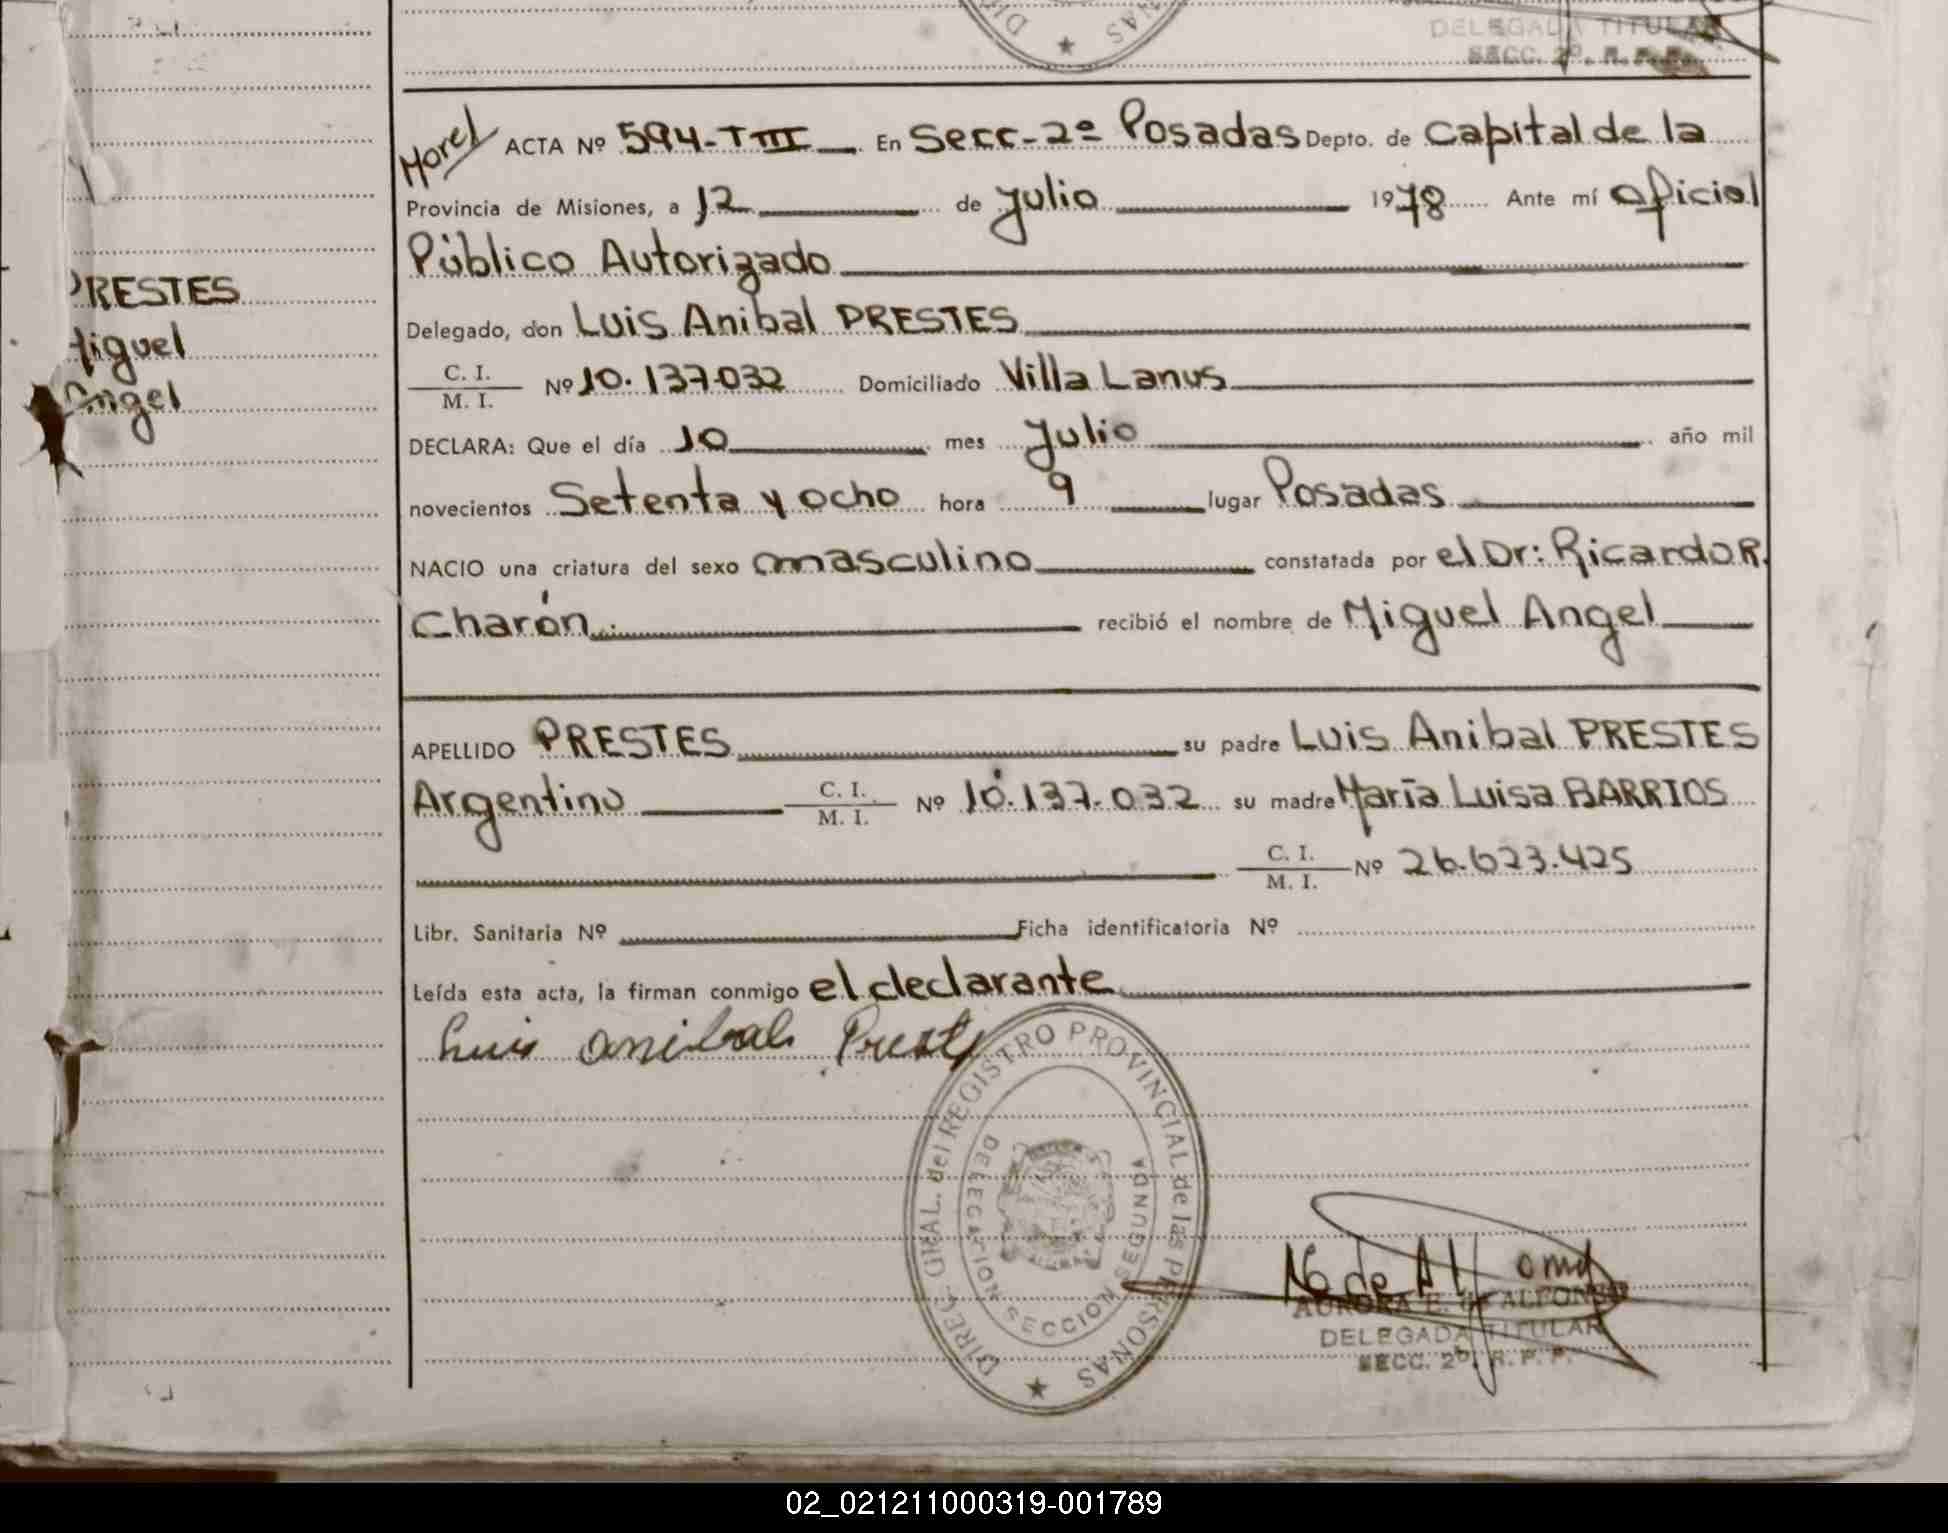 DELEGADA TITULAR
SECC. 2º. R. P. P.
Morel ACTA Nº 594-T III En Secc-2º Posadas Depto. de Capital de la
Provincia de Misiones, a 12 de Julio 1978 Ante mí Oficial
Público Autorizado
PRESTES
Miguel
Angel
Delegado, don Luis Anibal PRESTES
C. I.
M. I. Nº 10.137.032 Domiciliado Villa Lanus
DECLARA: Que el día 10 mes Julio año mil
novecientos Setenta y ocho hora 9 lugar Posadas
NACIO una criatura del sexo masculino constatada por el Dr: Ricardo R.
Charón recibió el nombre de Miguel Angel
APELLIDO PRESTES su padre Luis Anibal PRESTES
Argentino C. I.
M. I. Nº 10.137.032 su madre María Luisa BARRIOS
C. I.
M. I. Nº 26.623.425
Libr. Sanitaria Nº Ficha identificatoria Nº
Leída esta acta, la firman conmigo el declarante
Luis Anibal Preste
DIREC. GRAL. del REGISTRO PROVINCIAL de las PERSONAS
DELEGACION SECCION SEGUNDA
AURORA E. de ALFONSO
DELEGADA TITULAR
SECC. 2º. R. P. P.
02_021211000319-001789